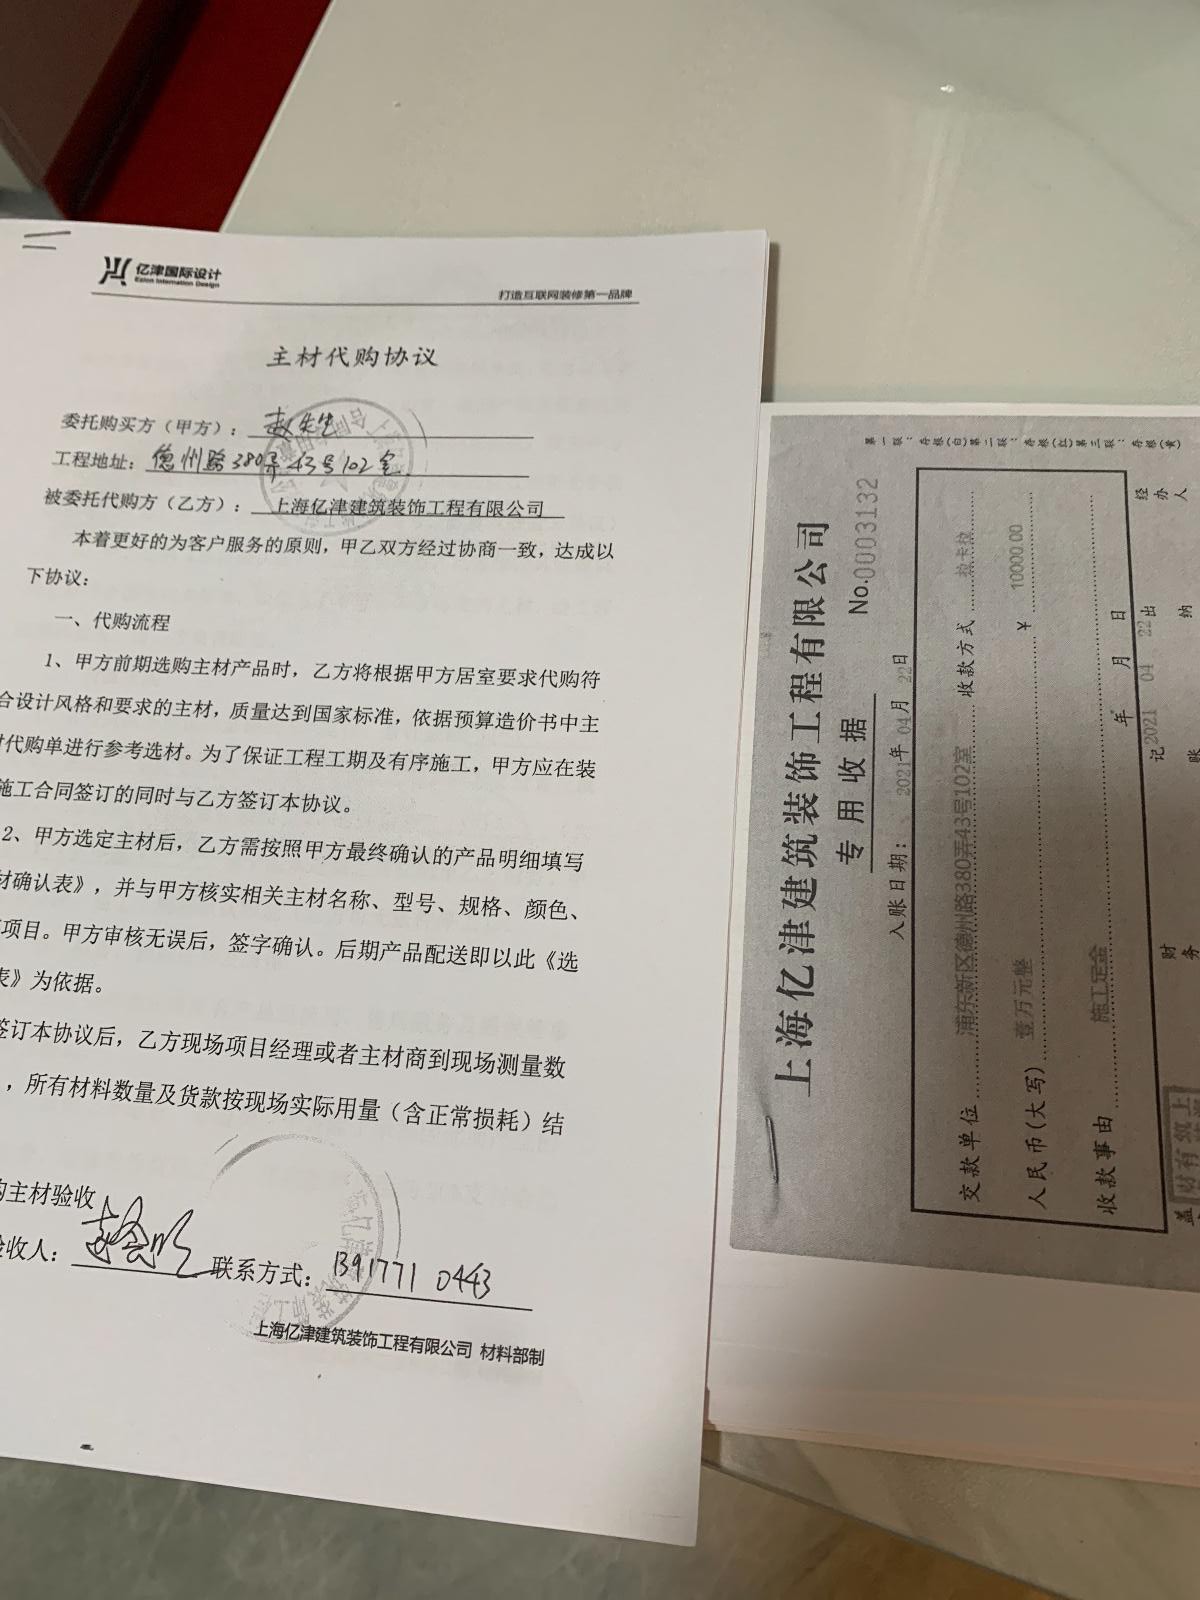 亿津国际设计
Esion Internation Design
打造互联网装修第一品牌
主材代购协议
委托购买方（甲方）：赵先生
工程地址：德州路380弄43号102室
被委托代购方（乙方）：上海亿津建筑装饰工程有限公司
本着更好的为客户服务的原则，甲乙双方经过协商一致，达成以
下协议：
一、代购流程
1、甲方前期选购主材产品时，乙方将根据甲方居室要求代购符
合设计风格和要求的主材，质量达到国家标准，依据预算造价书中主
代购单进行参考选材。为了保证工程工期及有序施工，甲方应在装
施工合同签订的同时与乙方签订本协议。
2、甲方选定主材后，乙方需按照甲方最终确认的产品明细填写
材确认表》，并与甲方核实相关主材名称、型号、规格、颜色、
项目。甲方审核无误后，签字确认。后期产品配送即以此《选
表》为依据。
签订本协议后，乙方现场项目经理或者主材商到现场测量数
，所有材料数量及货款按现场实际用量（含正常损耗）结
购主材验收
验收人：
联系方式：13917710443
上海亿津建筑装饰工程有限公司 材料部制
上海亿津建筑装饰工程有限公司
专用收据
No.0003132
第一联：存根（白）第二联：存根（红）第三联：存根（黄）
入账日期：2021年04月22日
交款单位 浦东新区德州路380弄43号102室 收款方式 拉卡拉
人民币（大写）壹万元整 ￥ 10000.00
收款事由 施工定金 年 月 日
2021 04 22
财务
记账
出纳
经办人